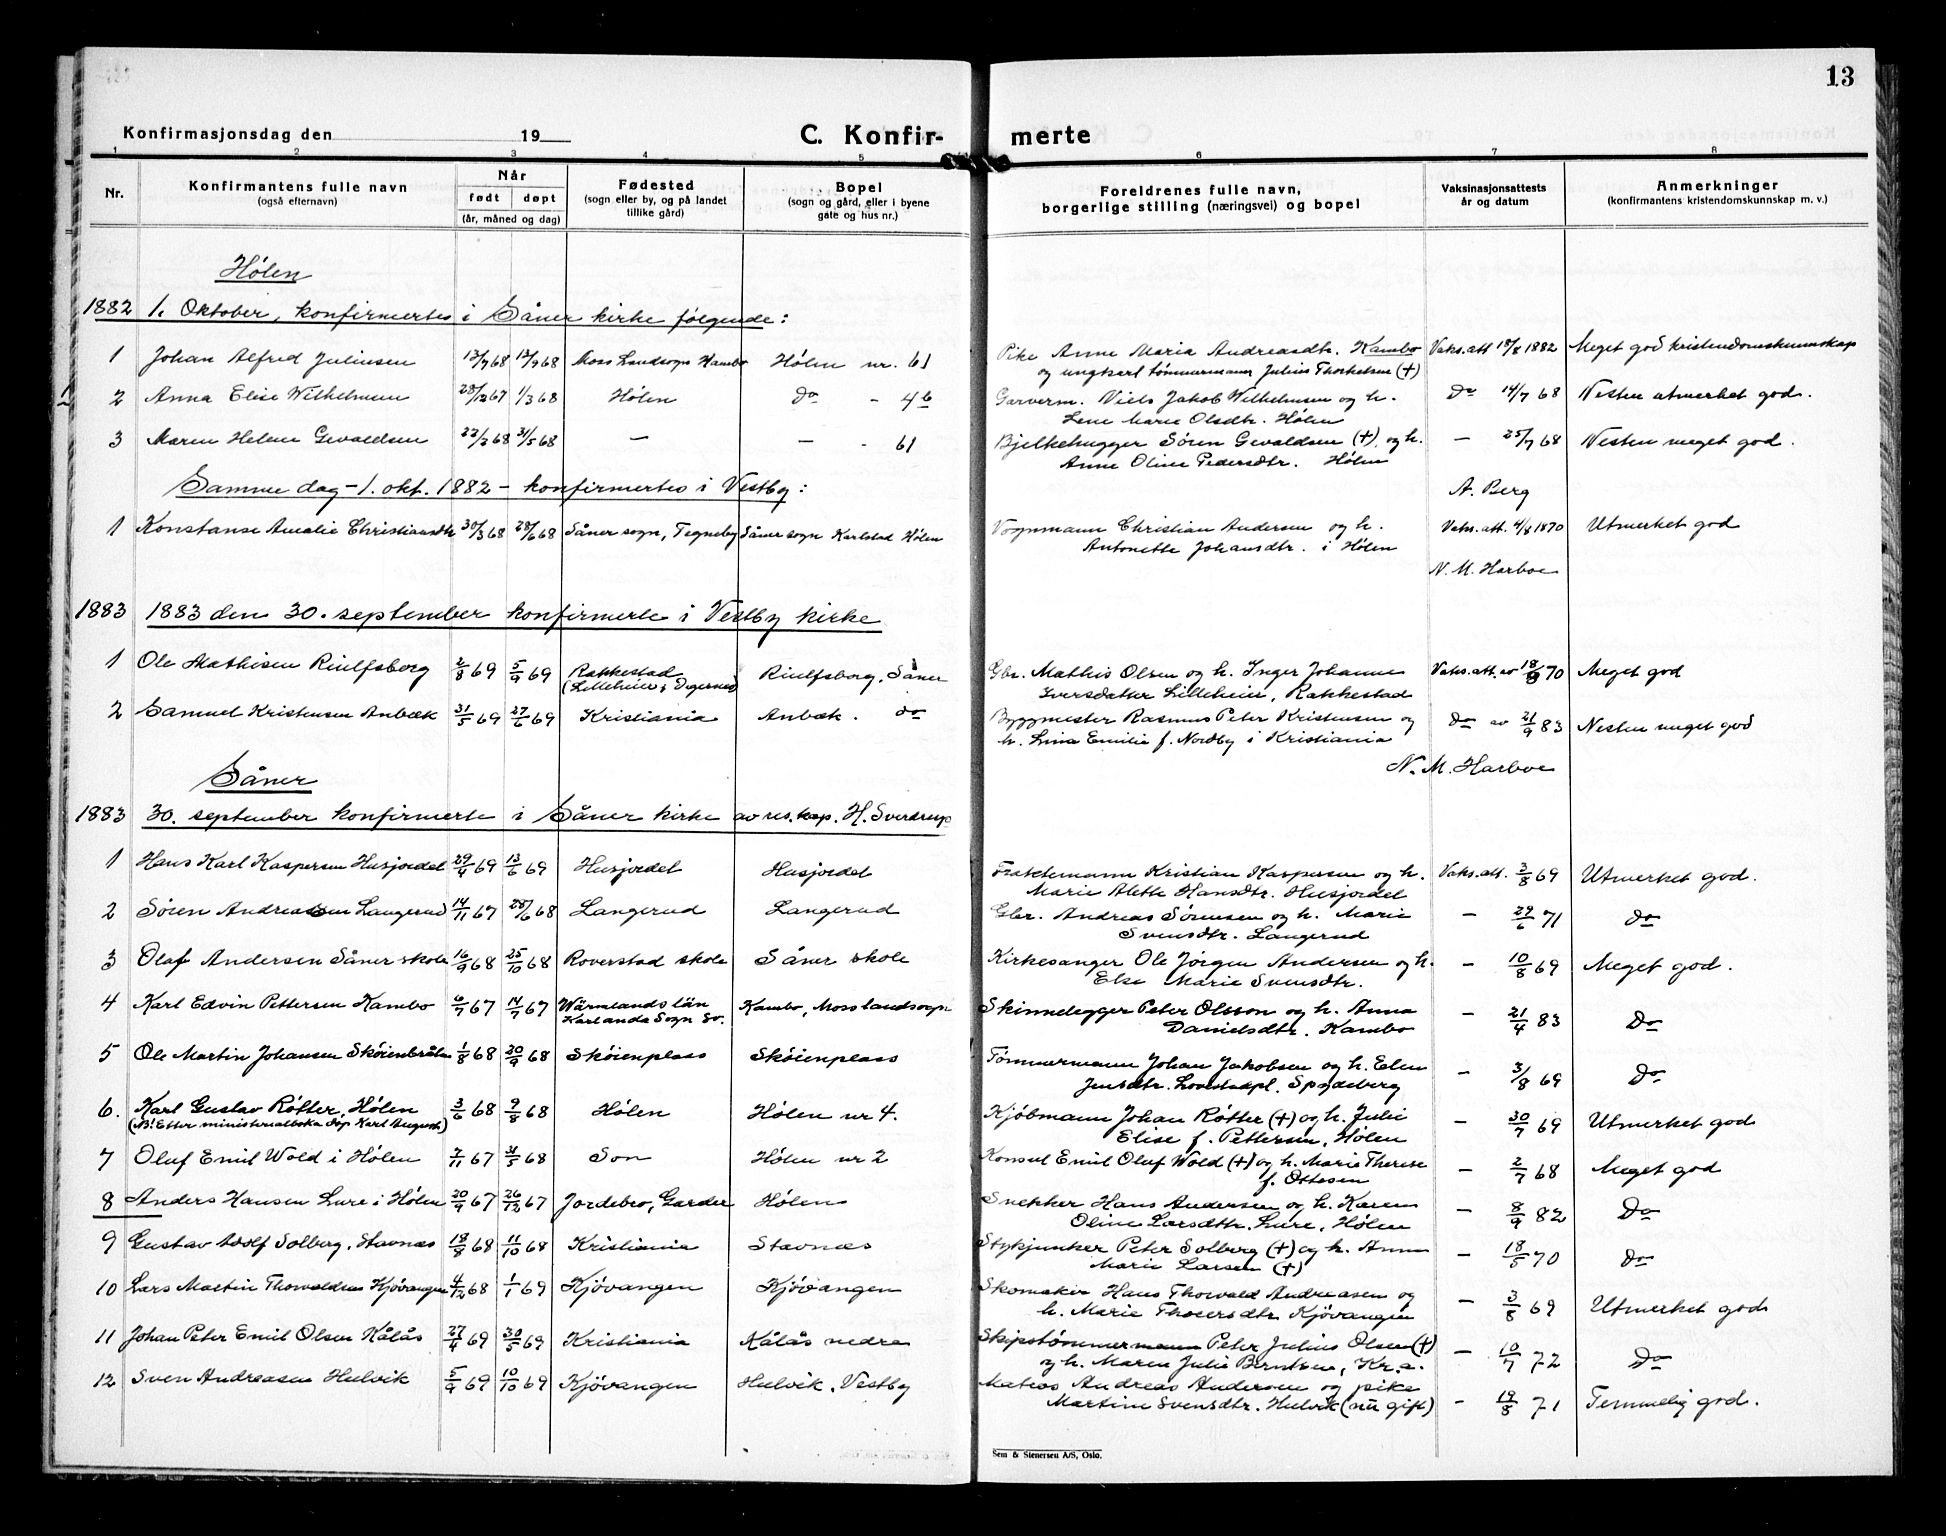 13
Konfirmasjonsdag den 19
C. Konfir- merte
1 2 3 4 5 6 7 8
Nr.
Konfirmantens fulle navn
(også efternavn)
Når
født døpt
(år, måned og dag)
Fødested
(sogn eller by, og på landet
tillike gård)
Bopel
(sogn og gård, eller i byene
gate og hus nr.)
Foreldrenes fulle navn,
borgerlige stilling (næringsvei) og bopel
Vaksinasjonsattests
år og datum
Anmerkninger
(konfirmantens kristendomskunnskap m. v.)
Hølen
1882 1. Oktober, konfirmertes i Såner kirke følgende:
1 Johan Alfred Juliusen 13/7 68 13/9 68 Moss Landsogn Kambo Hølen nr. 61 Pike Anne Maria Andreasdtr. Kambo Vaks.att 18/8 1882 Meget god kristendomskunnskap
og ungkarl tømmermann Julius Thorkelsen (+)
2 Anna Elise Wilhelmsen 28/12 67 1/3 68 Hølen do - 4b Garverm. Niels Jakob Wilhelmsen og h. do 14/7 68 Nesten utmerket god.
Lene Marie Olsdtr. Hølen
3 Maren Helene Gevaldsen 22/2 68 31/5 68 — — - 61 Bjelkehugger Søren Gevaldsen (+) og h. — 25/7 68 Nesten meget god.
Anne Oline Pedersdtr. Hølen
Samme dag - 1. okt. 1882 - konfirmertes i Vestby:
A. Berg
1 Konstanse Amalie Christiansdtr 30/3 68 28/6 68 Såner sogn, Tegneby Såner sogn Karlstad Hølen Vognmann Christian Andersen og h. Vaks.att. 4/8 1870 Utmerket god
Antonette Johansdtr. i Hølen
N. M. Harboe
1883 1883 den 30. september konfirmerte i Vestby kirke
1 Ole Mathisen Riulfsborg 2/8 69 5/9 69 Rakkestad Riulfsborg, Såner Gbr. Mathis Olsen og h. Inger Johanne Vaks.att. av 18/9 70 Meget god
(Lilleheier i Degernes) Iversdatter Lilleheier, Rakkestad
2 Samuel Kristensen Anbæk 31/5 69 27/6 69 Kristiania Anbæk. do Byggmester Rasmus Peter Kristensen og do av 21/9 83 Nesten meget god
h. Lina Emilie f. Nordby i Kristiania
N. M. Harboe
Såner
1883 30. september konfirmerte i Såner kirke av res.kap. H. Sverdrup
1 Hans Karl Kaspersen Husjordet 29/4 69 13/6 69 Husjordet Husjordet Fraktemann Kristian Kaspersen og h. Vaks.att. 3/8 69 Utmerket god.
Marie Alette Hansdtr. Husjordet
2 Søren Andreassen Langerud 14/11 67 28/6 68 Langerud Langerud Gbr. Andreas Sørensen og h. Marie — 29/6 71 do
Svensdtr. Langerud
3 Olaf Andersen Såner skole 16/9 68 25/10 68 Roverstad skole Såner skole Kirkesanger Ole Jørgen Andersen og h. — 10/8 69 Meget god.
Else Marie Svensdtr.
4 Karl Edvin Pettersen Kambo 6/7 67 14/7 67 Wärmlands län Kambo, Moss landsogn Skinnelegger Peter Olsson og h. Anna — 21/4 83 Do
Karlanda Sogn Sv. Danielsdtr. Kambo
5 Ole Martin Johansen Skøienbråten 1/8 68 20/9 68 Skøienplass Skøienplass Tømmermann Johan Jakobsen og h. Elen — 3/8 69 Do
Jensdtr. Lovestadpl. Spydeberg
6. Karl Gustav Røtter, Hølen 3/6 68 9/8 68 Hølen Hølen nr 4. Kjøbmann Johan Røtter (+) og h. Julie — 30/7 69 Utmerket god
(N. Etter ministerialboka døp Karl August) Elise f. Pettersen, Hølen
7 Oluf Emil Wold i Hølen 7/11 67 31/5 68 Son Hølen nr 2 Konsul Emil Oluf Wold (+) og h. Marie Therese — 2/7 68 Meget god
f. Ottesen
8 Anders Hansen Lure i Hølen 20/9 67 26/12 67 Jordebro, Garder Hølen Snekker Hans Andersen og h. Karen — 8/9 82 Do
Oline Larsdtr. Lure, Hølen
9 Gustav Adolf Solberg, Stavnæs 18/8 68 11/10 68 Kristiania Stavnæs Stykjunker Peter Solberg (+) og h. Anne — 18/5 70 do
Marie Larsen (+)
10 Lars Martin Thorvaldsen Kjøvangen 4/12 68 1/1 69 Kjøvangen Kjøvangen Skomaker Hans Thorvald Andreasen og — 3/8 69 Utmerket god
h. Marie Thoersdtr Kjøvangen
11 Johan Peter Emil Olsen Kålås 27/4 69 30/5 69 Kristiania Kålås nedre Skipstømmermann Peter Julius Olsen (+) — 10/7 72 Do
og h. Maren Julie Berntsen, Kr.a.
12 Sven Andreasen Hulvik 5/9 69 10/10 69 Kjøvangen Hulvik, Vestby Matros Andreas Andersen og pike — 19/8 71 Temmelig god.
Martine Svensdtr. Hulvik (nu gift)
Sem & Stenersen A/S, Oslo.